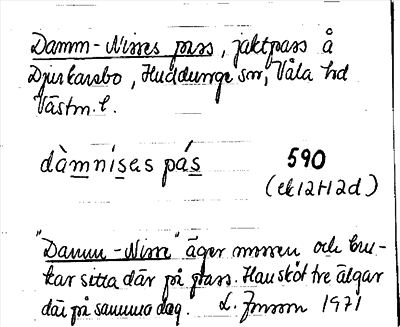 Damm-Nisses pass, jaktpass å
Djurkarsbo, Huddunge sn, Våla hd
Västm. l.
dàmnises pás
590
(ek12H2d)
"Damm-Nisse" äger mossen och bru-
kar sitta där på pass. Han sköt tre älgar
där på samma dag. L. Jonsson 1971